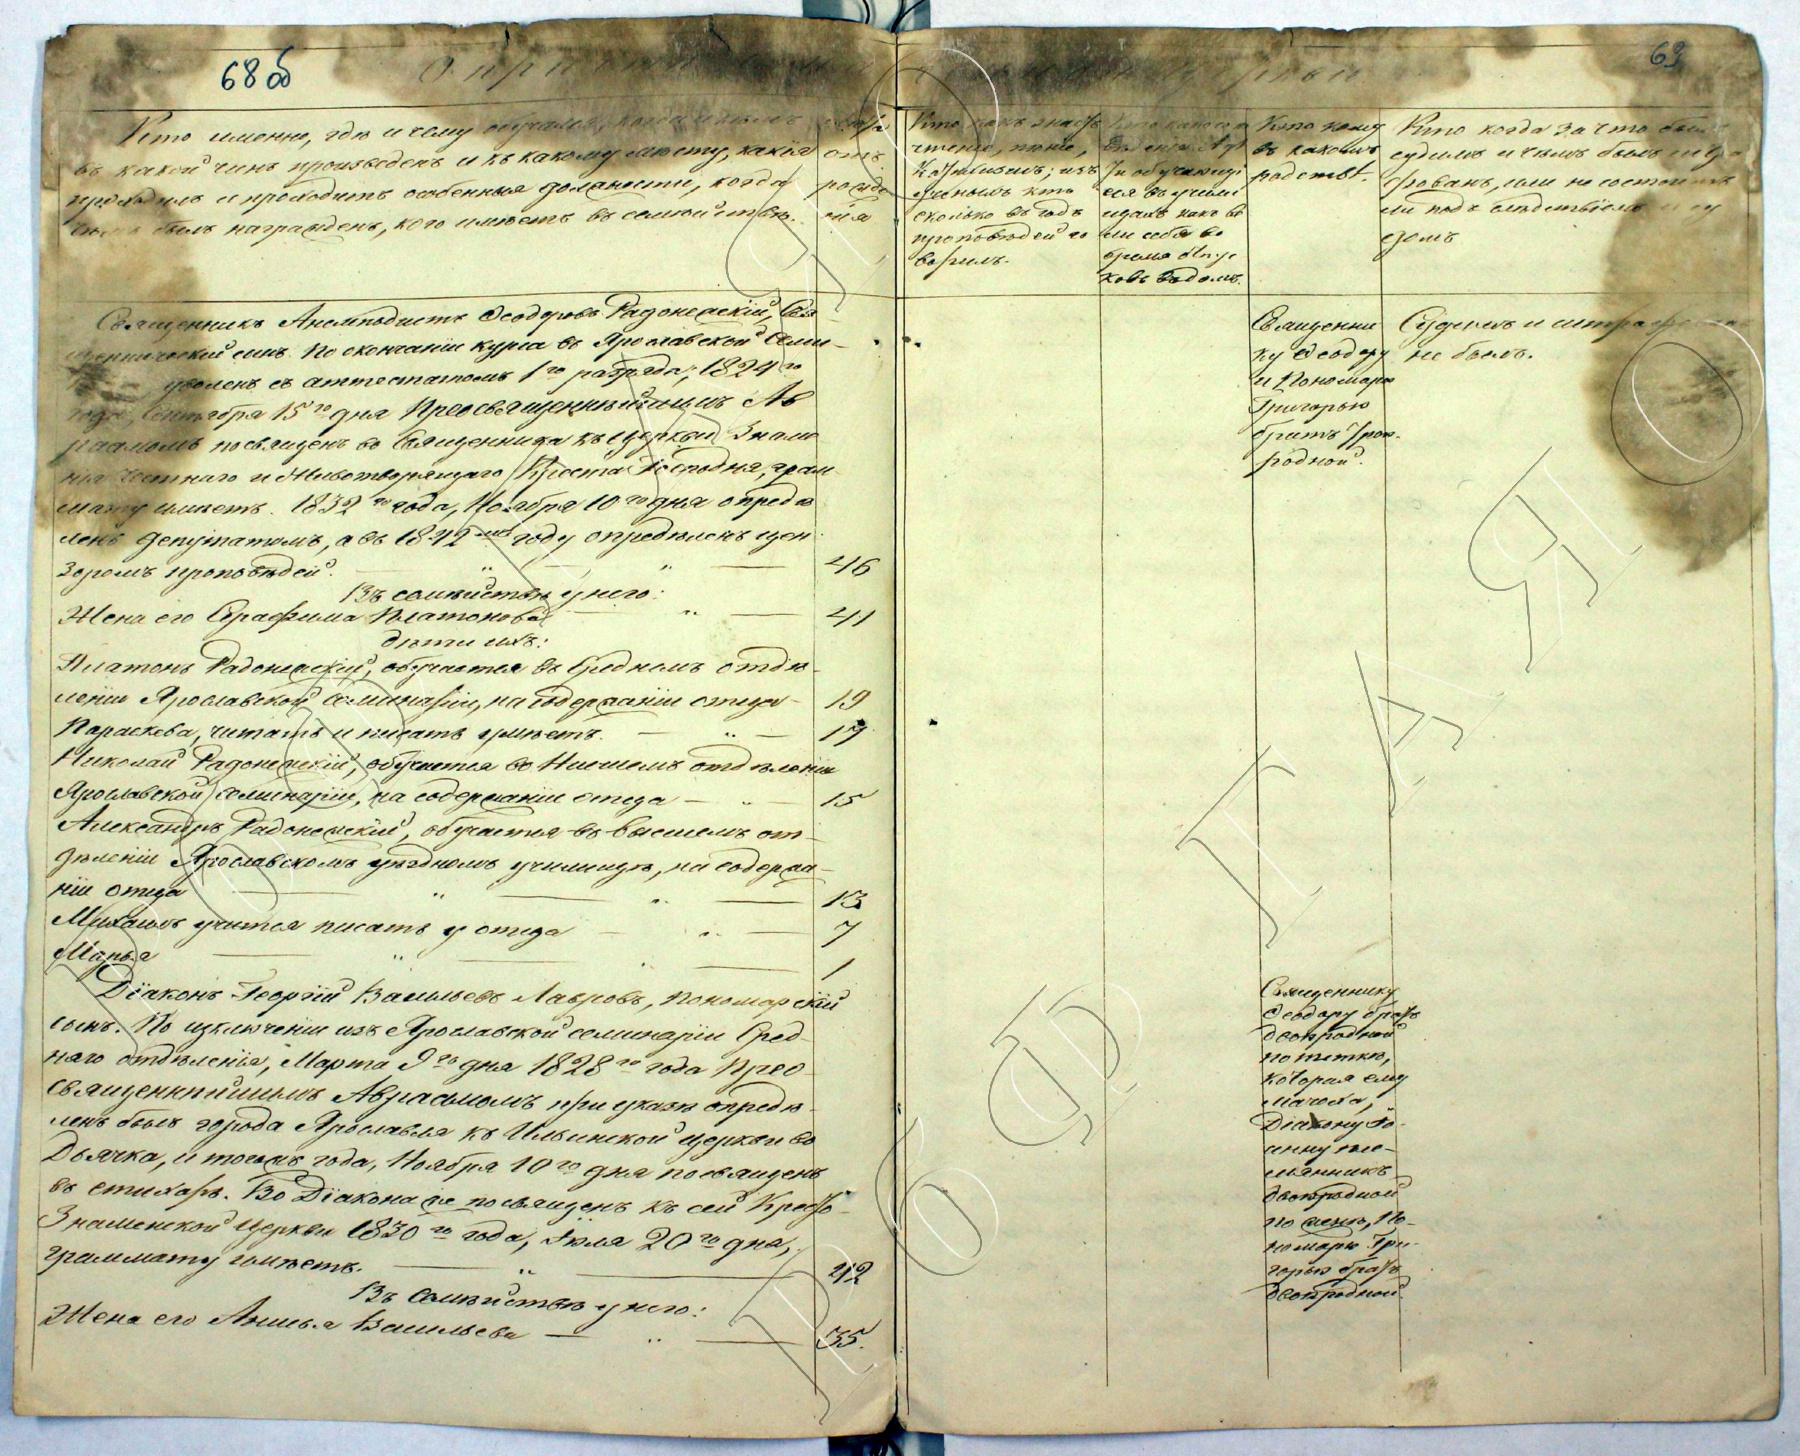 68 об
69
Кто именно, где и чему обучался, когда и кемъ
въ какой чинъ произведенъ и къ какому мѣсту, какія
проходилъ и проходитъ особенныя должности, когда
чѣмъ былъ награжденъ, кого имѣетъ въ семействѣ.
отъ
рожде
нія
Кто какъ знаетъ
чтеніе, пѣніе,
Катихизисъ; изъ
ученыхъ кто
сколько въ годъ
проповѣдей го
ворилъ.
обучающі
еся въ учили
щахъ какъ ве
ли себя во
время отпус
ковъ въ домъ.
Кто кому
въ какомъ
родствѣ.
Кто когда за что былъ
судимъ и чѣмъ былъ штра
фованъ, или не состоитъ
ли подъ слѣдствіемъ и су
домъ
Священникъ Анемподистъ Ѳеодоровъ Радонежскій, Свя-
щенническій сынъ. По окончаніи курса въ Ярославской Семи-
уволенъ съ аттестатомъ 1го разряда; 1824го
года, Сентября 15го дня Преосвященнѣйшимъ Ав
раамомъ посвященъ во Священника къ церкви Знаме
нія Честнаго и Животворящаго Креста Господня, грам
мату имѣетъ. 1832го года, Ноября 10го дня опредѣ
ленъ депутатомъ, а въ 1842мъ году опредѣленъ цен
зоромъ проповѣдей. — „ — „ — 46
Въ семействѣ у него:
Жена его Серафима Платонова — „ — 41
дѣти ихъ:
Платонъ Радонежскій, обучается въ Среднемъ отдѣ-
леніи Ярославской семинаріи, на содержаніи отца — 19
Параскева, читать и писать умѣетъ. — „ — 17
Николай Радонежскій, обучается въ Низшемъ отдѣленіи
Ярославской семинаріи, на содержаніи отца — „ — 15
Александръ Радонежскій, обучается въ высшемъ от-
дѣленіи Ярославскомъ уѣздномъ училищѣ, на содержа-
ніи отца — „ — „ — 13
Михаилъ учится писать у отца — „ — 7
Марья — „ — „ — 1
Діаконъ Георгій Васильевъ Лавровъ, пономарскій
сынъ. По изключеніи изъ Ярославской семинаріи Сред-
няго отдѣленія, Марта 9го дня 1828го года Прео-
священнѣйшимъ Авраамомъ при указѣ опредѣ-
ленъ былъ города Ярославля къ Ильинской церкви во
Дьячка, и тогожъ года, Ноября 10го дня посвященъ
въ стихарь. Во Діакона же посвященъ къ сей Кресто-
Знаменской Церкви 1830го года, Іюля 20го дня,
граммату имѣетъ. — „ — 42
Въ семействѣ у него:
Жена его Анисья Васильева — „ — 35.
Священни
ку Ѳеодору
и Пономарю
Григорью
братъ трою-
родной.
Судимъ и штрафованъ
не былъ.
Священнику
Ѳеодору братъ
двоюродной
по теткѣ,
которая ему
мачиха,
Діакону Іо-
анну пле-
мянникъ
двоюродной
по женѣ, По-
номарю Гри-
горью братъ
двоюродной.
ЯРОБФПАЯРО